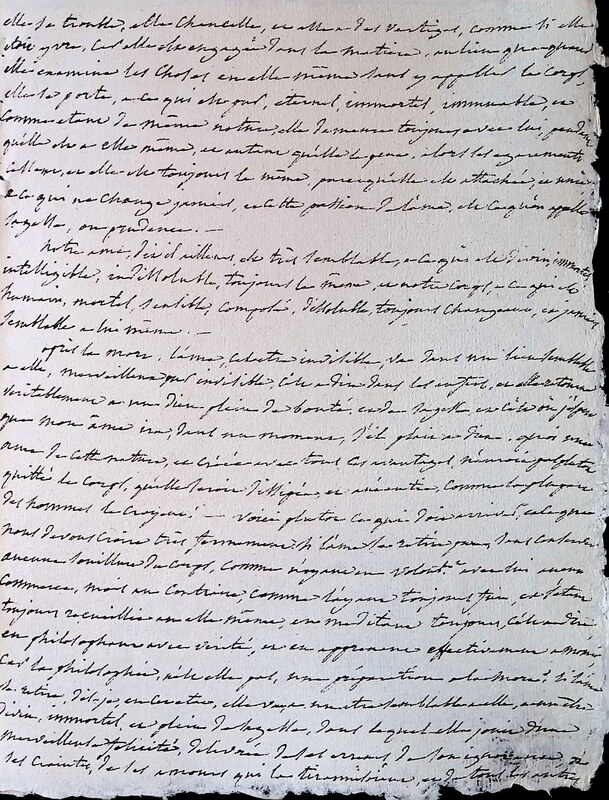 elle se trouble, elle chancelle, et elle a des vertiges, comme si elle
étoit yvre, car elle est engagée dans la matière, au lieu que quand
elle examine les choses en elle même sans y appeller le corps,
elle se porte, a ce qui est pur, eternel, immortel, immuable, et
comme etant de même nature, elle demeure toujours avec lui,
qu'elle est a elle même, et autant qu'elle le peut, alors les egaremens
cessent, et elle est toujours la même, parcequ'elle est attachée, et unie
a ce qui ne change jamais, et cette passion de l'ame, est ce qu'on appelle
sagesse, ou prudence. —
notre ame, d'ailleurs, est très semblable, a ce qui est divin, immortel,
intelligible, indissoluble, toujours le même, et notre corps, a ce qui est
humain, mortel, sensible, composé, dissoluble, toujours changeant, et jamais
semblable a lui même. —
après la mort, l'ame, cet etre invisible, va dans un lieu semblable
a elle, merveilleux pur invisible, c'est a dire dans les enfers, et elle retourne
veritablement a un dieu plein de bonté, et de sagesse et c'est où j'espere
que mon âme ira, dans un moment, s'il plait a dieu. après une
ame de cette nature, et créée avec tous ces avantages, n'auroit pas plutot
quitté le corps, qu'elle seroit dissipée, et anéantie, comme la plupart
des hommes le croyent! — voici plutot ce qui doit arriver, et ce que
nous devons croire très fermement. si l'ame se retire pure, sans conserver
aucune souillure du corps, comme n'ayant volontre avec lui aucun
commerce, mais au contraire, comme l'ayant toujours fui, et s'étant
toujours recueillie en elle même, en meditant toujours, c'est a dire
en philosophant avec vérité, et en apprenant effectivement a mourir
car la philosophie, n'est elle pas, une préparation a la mort? si l'ame
se retire, dis-je, en cet etat, elle va a un etre semblable a elle, a un etre
divin, immortel, et plein de sagesse, dans lequel elle jouit d'une
merveilleuse felicité, delivrée de ses erreurs, de son ignorance, de
ses craintes, de ses amours qui la tirannisoient, et de tous les autres